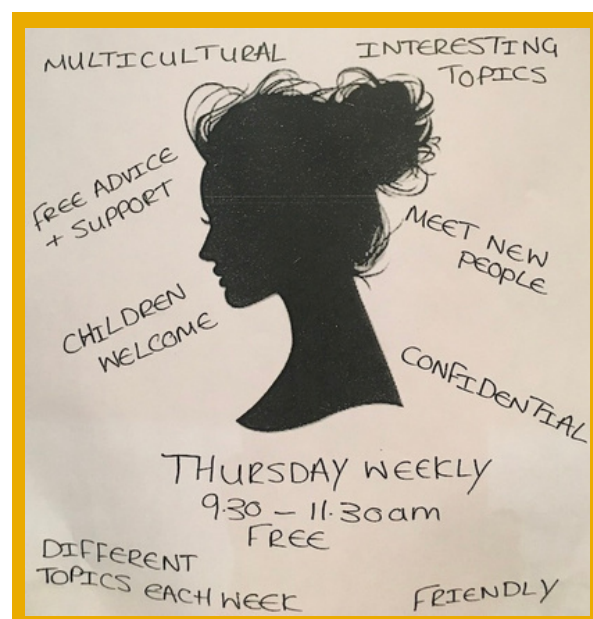 MULTICULTURAL
INTERESTING
TOPICS
FREE ADVICE
+ SUPPORT
MEET NEW
PEOPLE
CHILDREN
WELCOME
CONFIDENTIAL
THURSDAY WEEKLY
9.30 – 11.30am
FREE
DIFFERENT
TOPICS EACH WEEK
FRIENDLY